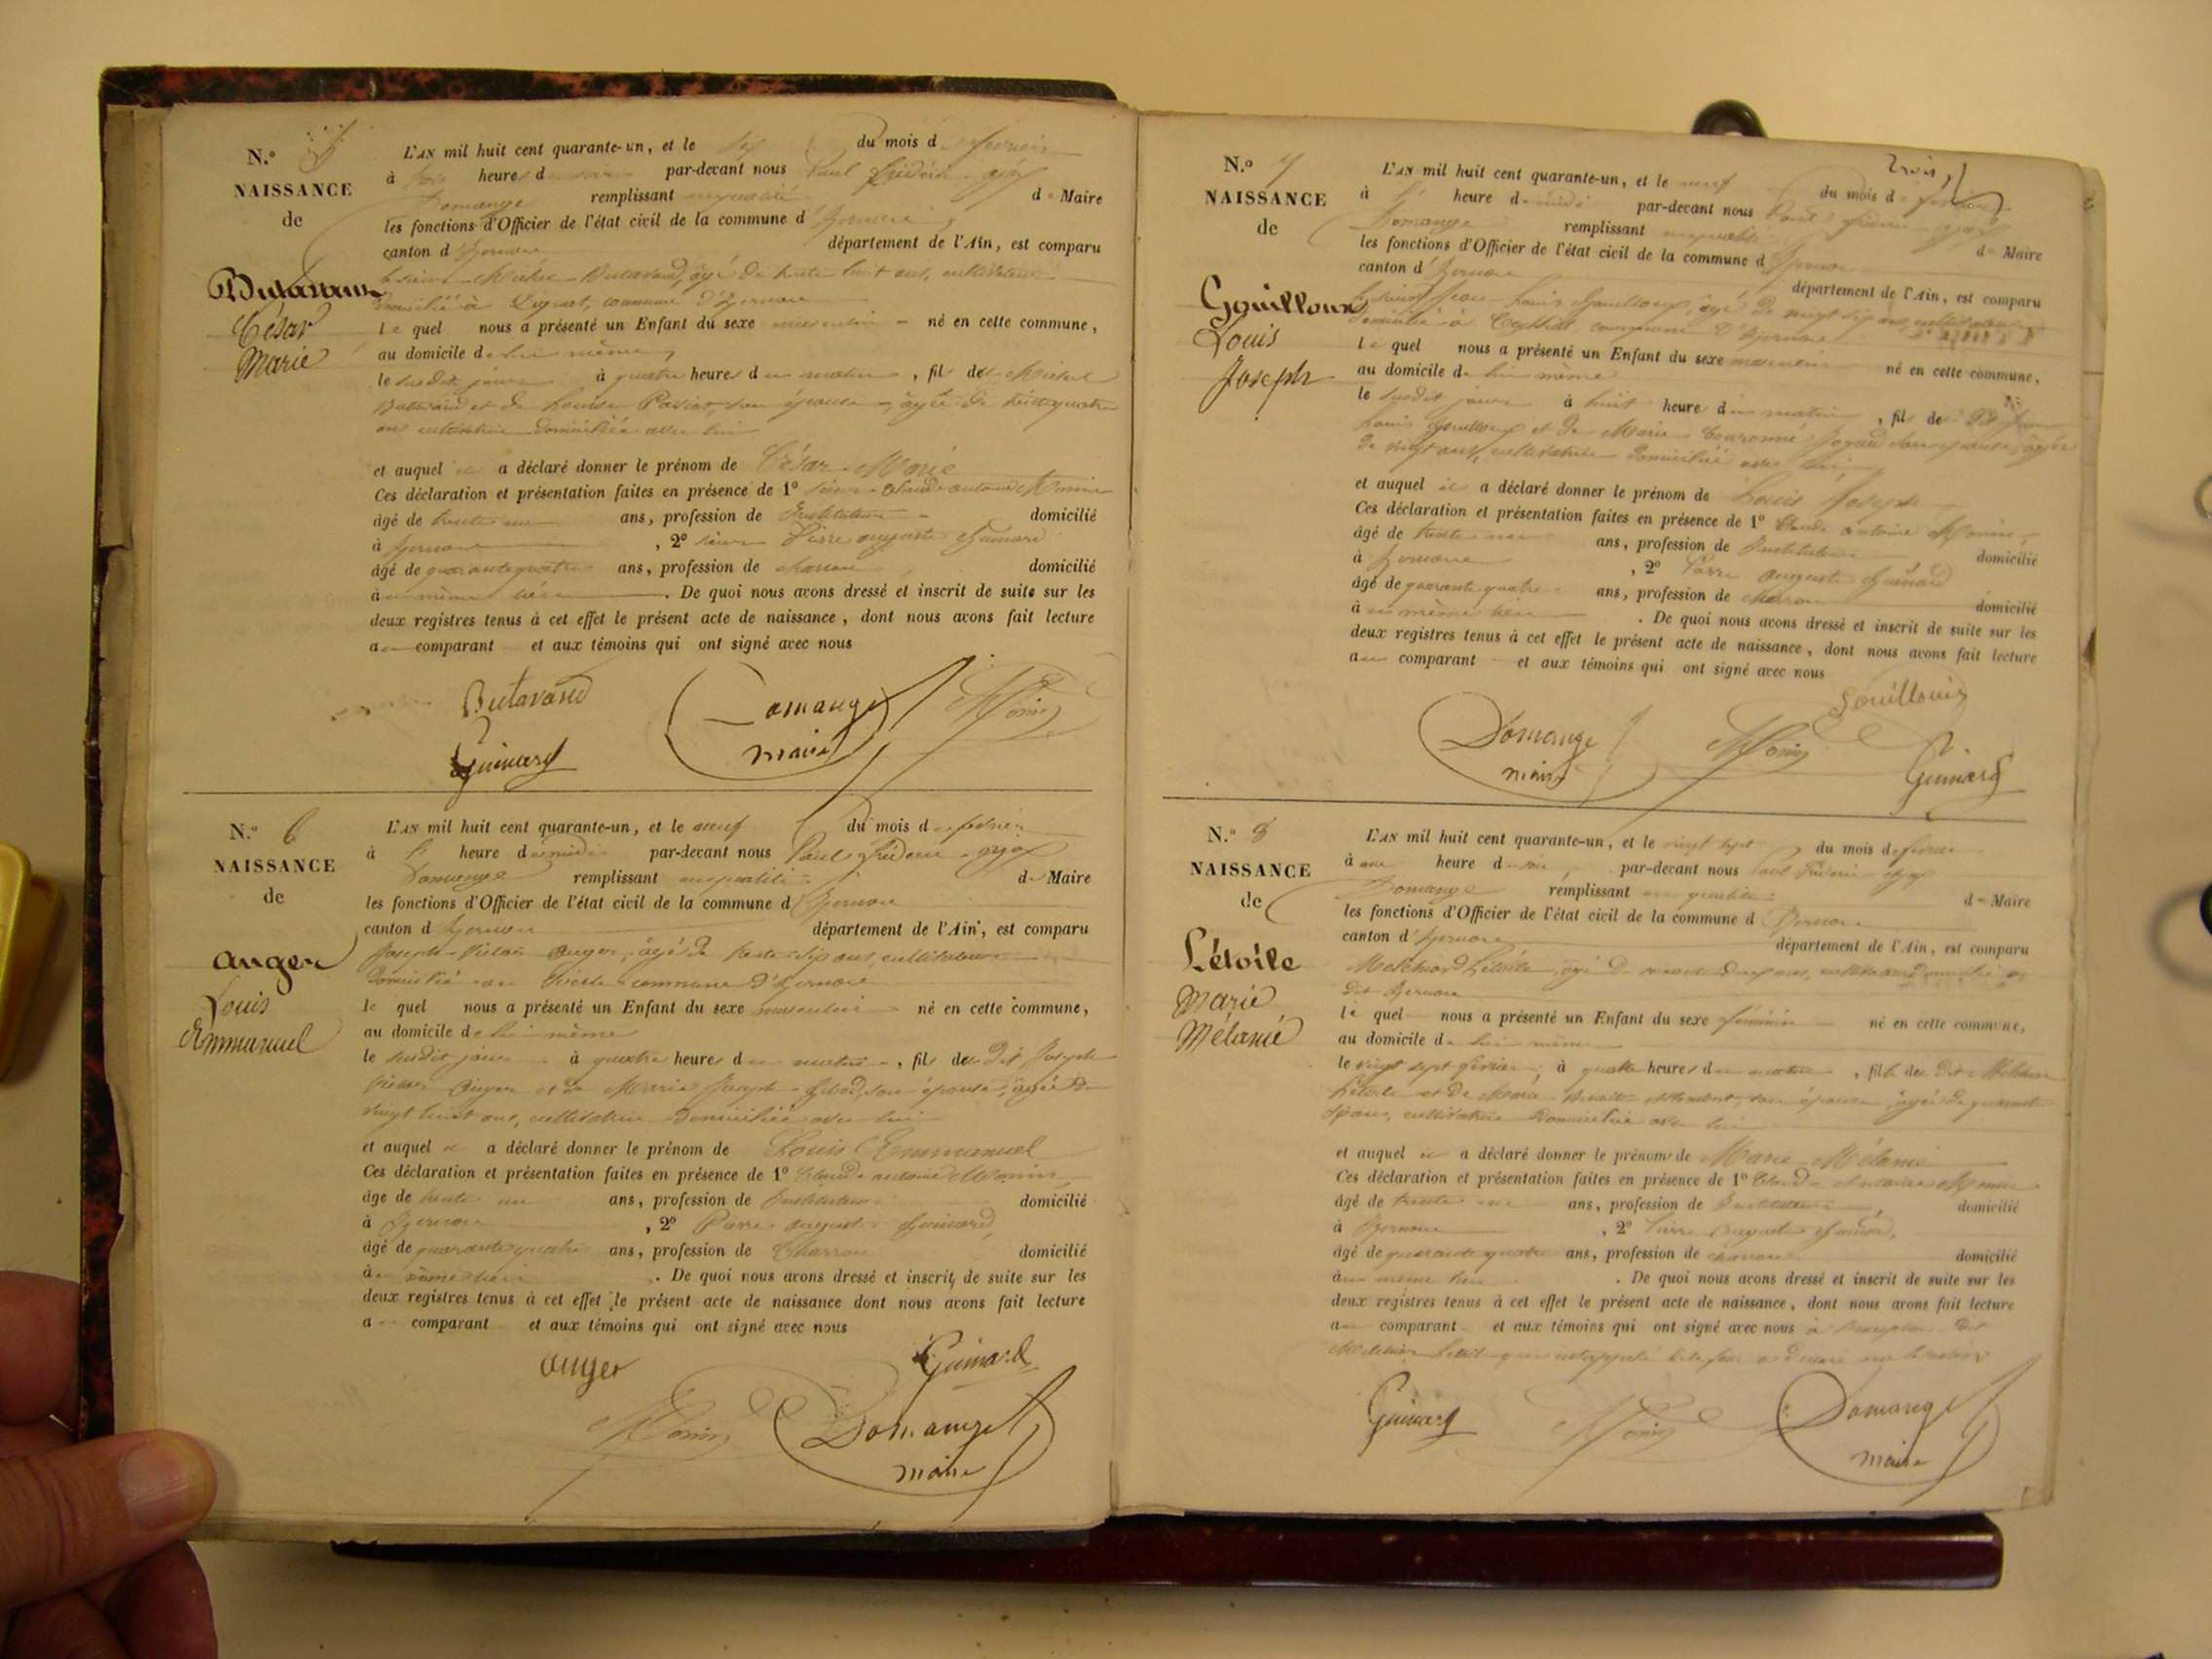 N.° 5
NAISSANCE
de
Butavand
César
Marie
L'AN mil huit cent quarante-un, et le six du mois de février
à trois heures du soir par-devant nous Paul Frédéric
Domange remplissant en qualité de Maire
les fonctions d'Officier de l'état civil de la commune d'Izernore
canton d'Izernore département de l'Ain, est comparu
le sieur Michel Butavand, âgé de trente huit ans, cultivateur
domicilié à commune d'Izernore
lequel nous a présenté un Enfant du sexe masculin né en cette commune,
au domicile de lui même,
le susdit jour à quatre heures du matin, fils de Michel
Butavand et de Louise son épouse, âgée de trente quatre
ans cultivatrice domiciliée avec lui
et auquel il a déclaré donner le prénom de César Marie
Ces déclaration et présentation faites en présence de 1° sieur Claude antoine Monin
âgé de trente un ans, profession de Instituteur domicilié
à Izernore, 2° sieur Pierre auguste Guinard
âgé de quarante quatre ans, profession de charron domicilié
à même lieu. De quoi nous avons dressé et inscrit de suite sur les
deux registres tenus à cet effet le présent acte de naissance, dont nous avons fait lecture
au comparant et aux témoins qui ont signé avec nous
Butavand Domange Monin
Guinard maire
N.° 6
NAISSANCE
de
Auger
Louis
Emmanuel
L'AN mil huit cent quarante-un, et le neuf du mois de février
à heure de midi par-devant nous Paul Frédéric
Domange remplissant en qualité de Maire
les fonctions d'Officier de l'état civil de la commune d'Izernore
canton d'Izernore département de l'Ain, est comparu
Joseph Victor Auger, âgé de trente six ans, cultivateur
domicilié au commune d'Izernore
lequel nous a présenté un Enfant du sexe masculin né en cette commune,
au domicile de lui même
le susdit jour à quatre heures du matin, fils de dit Joseph
Victor Auger et de Marie Josephe son épouse, âgée de
vingt huit ans, cultivatrice domiciliée avec lui
et auquel il a déclaré donner le prénom de Louis Emmanuel
Ces déclaration et présentation faites en présence de 1° Claude antoine Monin
âgé de trente un ans, profession de Instituteur domicilié
à Izernore, 2° Pierre auguste Guinard,
âgé de quarante quatre ans, profession de Charron domicilié
à même lieu. De quoi nous avons dressé et inscrit de suite sur les
deux registres tenus à cet effet le présent acte de naissance dont nous avons fait lecture
au comparant et aux témoins qui ont signé avec nous
Auger Guinard
Monin Domange
maire
trois
N.° 7
NAISSANCE
de
Gouilloux
Louis
Joseph
L'AN mil huit cent quarante-un, et le neuf du mois de février
à heure de midi par-devant nous Paul Frédéric
Domange remplissant en qualité de Maire
les fonctions d'Officier de l'état civil de la commune d'Izernore
canton d'Izernore département de l'Ain, est comparu
le sieur Jean Louis Gouilloux, âgé de vingt six ans, cultivateur
domicilié à Ceyssiat, commune d'Izernore
lequel nous a présenté un Enfant du sexe masculin né en cette commune,
au domicile de lui même
le susdit jour à huit heure du matin, fils de dit Jean
Louis Gouilloux et de Marie son épouse, âgée
de vingt ans, cultivatrice domiciliée avec lui
et auquel il a déclaré donner le prénom de Louis Joseph
Ces déclaration et présentation faites en présence de 1° Claude antoine Monin,
âgé de trente un ans, profession de Instituteur domicilié
à Izernore, 2° Pierre Auguste Guinard
âgé de quarante quatre ans, profession de charron domicilié
à même lieu. De quoi nous avons dressé et inscrit de suite sur les
deux registres tenus à cet effet le présent acte de naissance, dont nous avons fait lecture
au comparant et aux témoins qui ont signé avec nous
Gouilloux
Domange Monin Guinard
maire
N.° 8
NAISSANCE
de
L'étoile
Marie
Mélanie
L'AN mil huit cent quarante-un, et le vingt sept du mois de février
à une heure du soir par-devant nous Paul Frédéric
Domange remplissant en qualité de Maire
les fonctions d'Officier de l'état civil de la commune d'Izernore
canton d'Izernore département de l'Ain, est comparu
Melchior L'étoile âgé de ans, cultivateur domicilié au
dit Izernore
lequel nous a présenté un Enfant du sexe féminin né en cette commune,
au domicile de lui même
le vingt sept février, à quatre heures du matin, fille de dit Melchior
L'étoile et de Marie son épouse, âgée de quarante
ans, cultivatrice domiciliée avec lui
et auquel il a déclaré donner le prénoms de Marie Mélanie
Ces déclaration et présentation faites en présence de 1° Claude Antoine Monin
âgé de trente un ans, profession de Instituteur domicilié
à Izernore, 2° Pierre Auguste Guinard,
âgé de quarante quatre ans, profession de charron domicilié
à même lieu. De quoi nous avons dressé et inscrit de suite sur les
deux registres tenus à cet effet le présent acte de naissance, dont nous avons fait lecture
au comparant et aux témoins qui ont signé avec nous à l'exception dit
Melchior L'étoile qui interpellé de le faire a déclaré
Guinard Monin Domange
maire